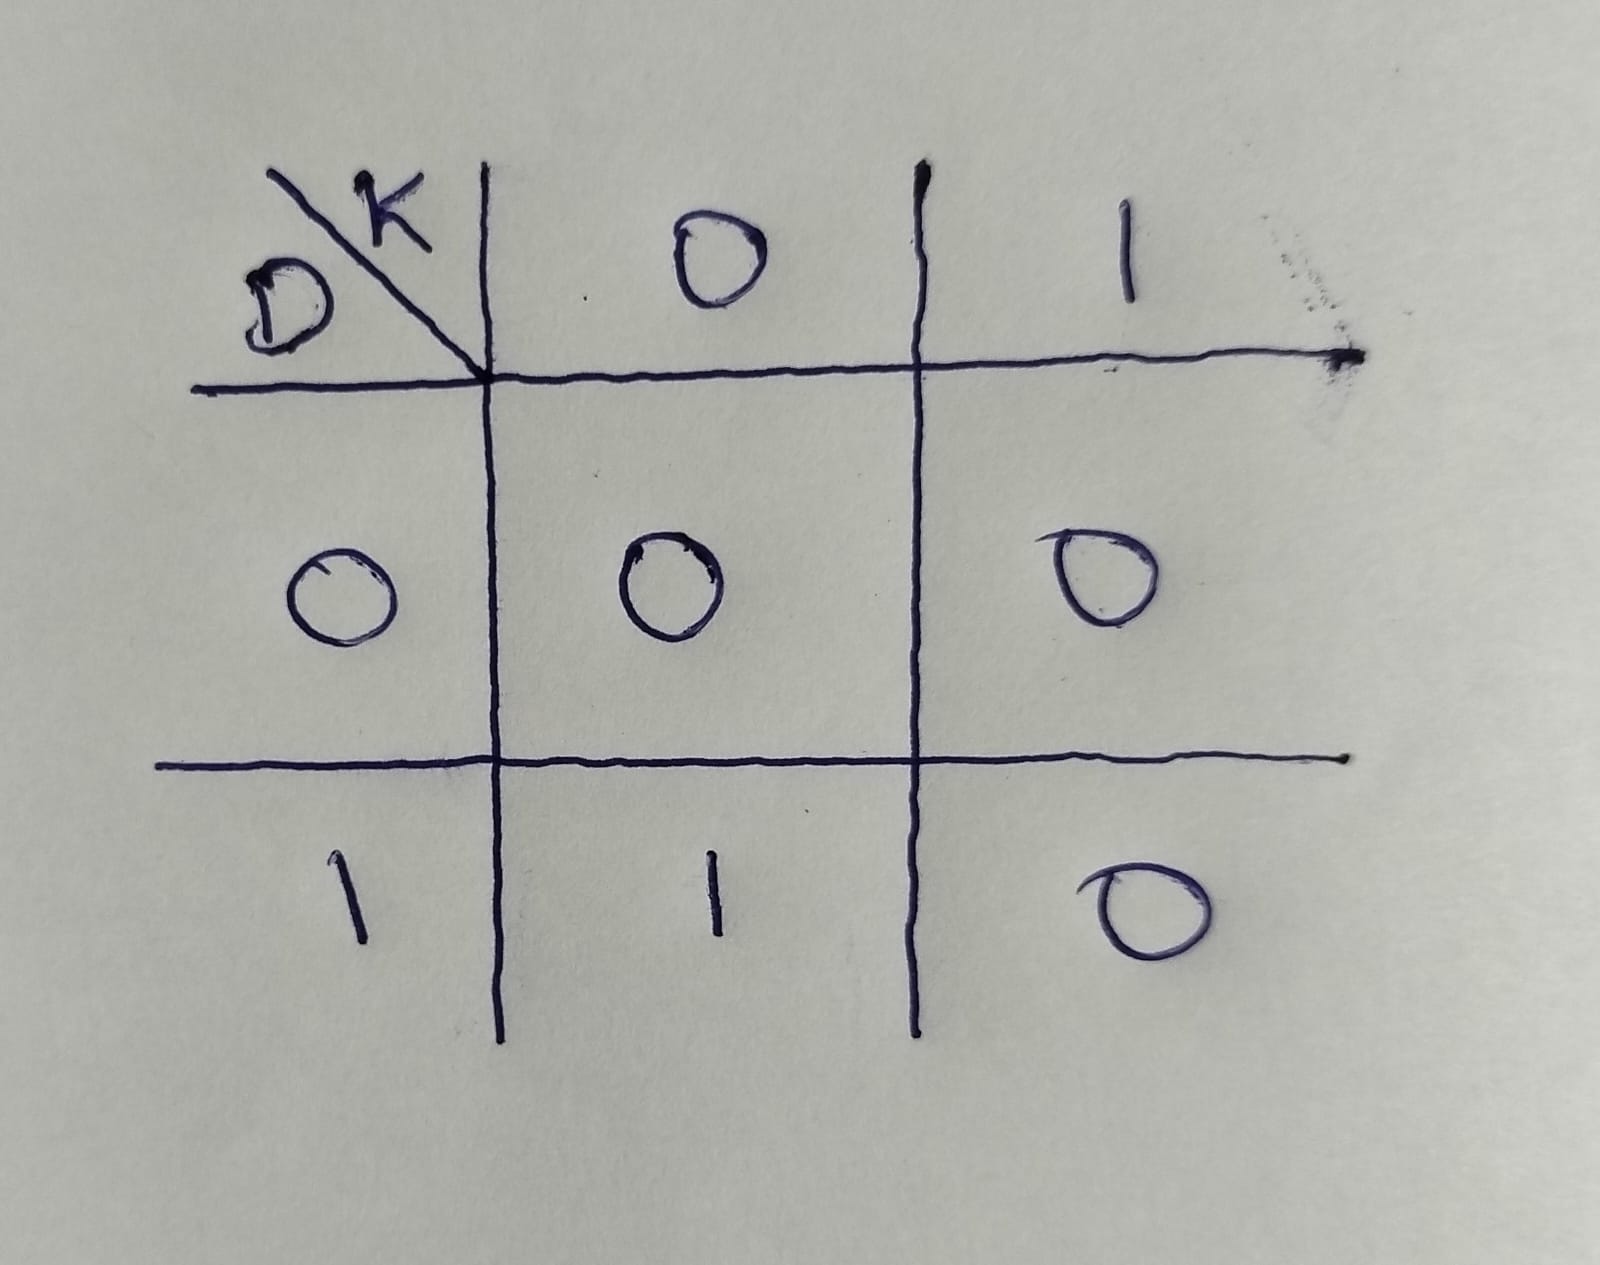 D K 0 1
0 0 0
1 1 0